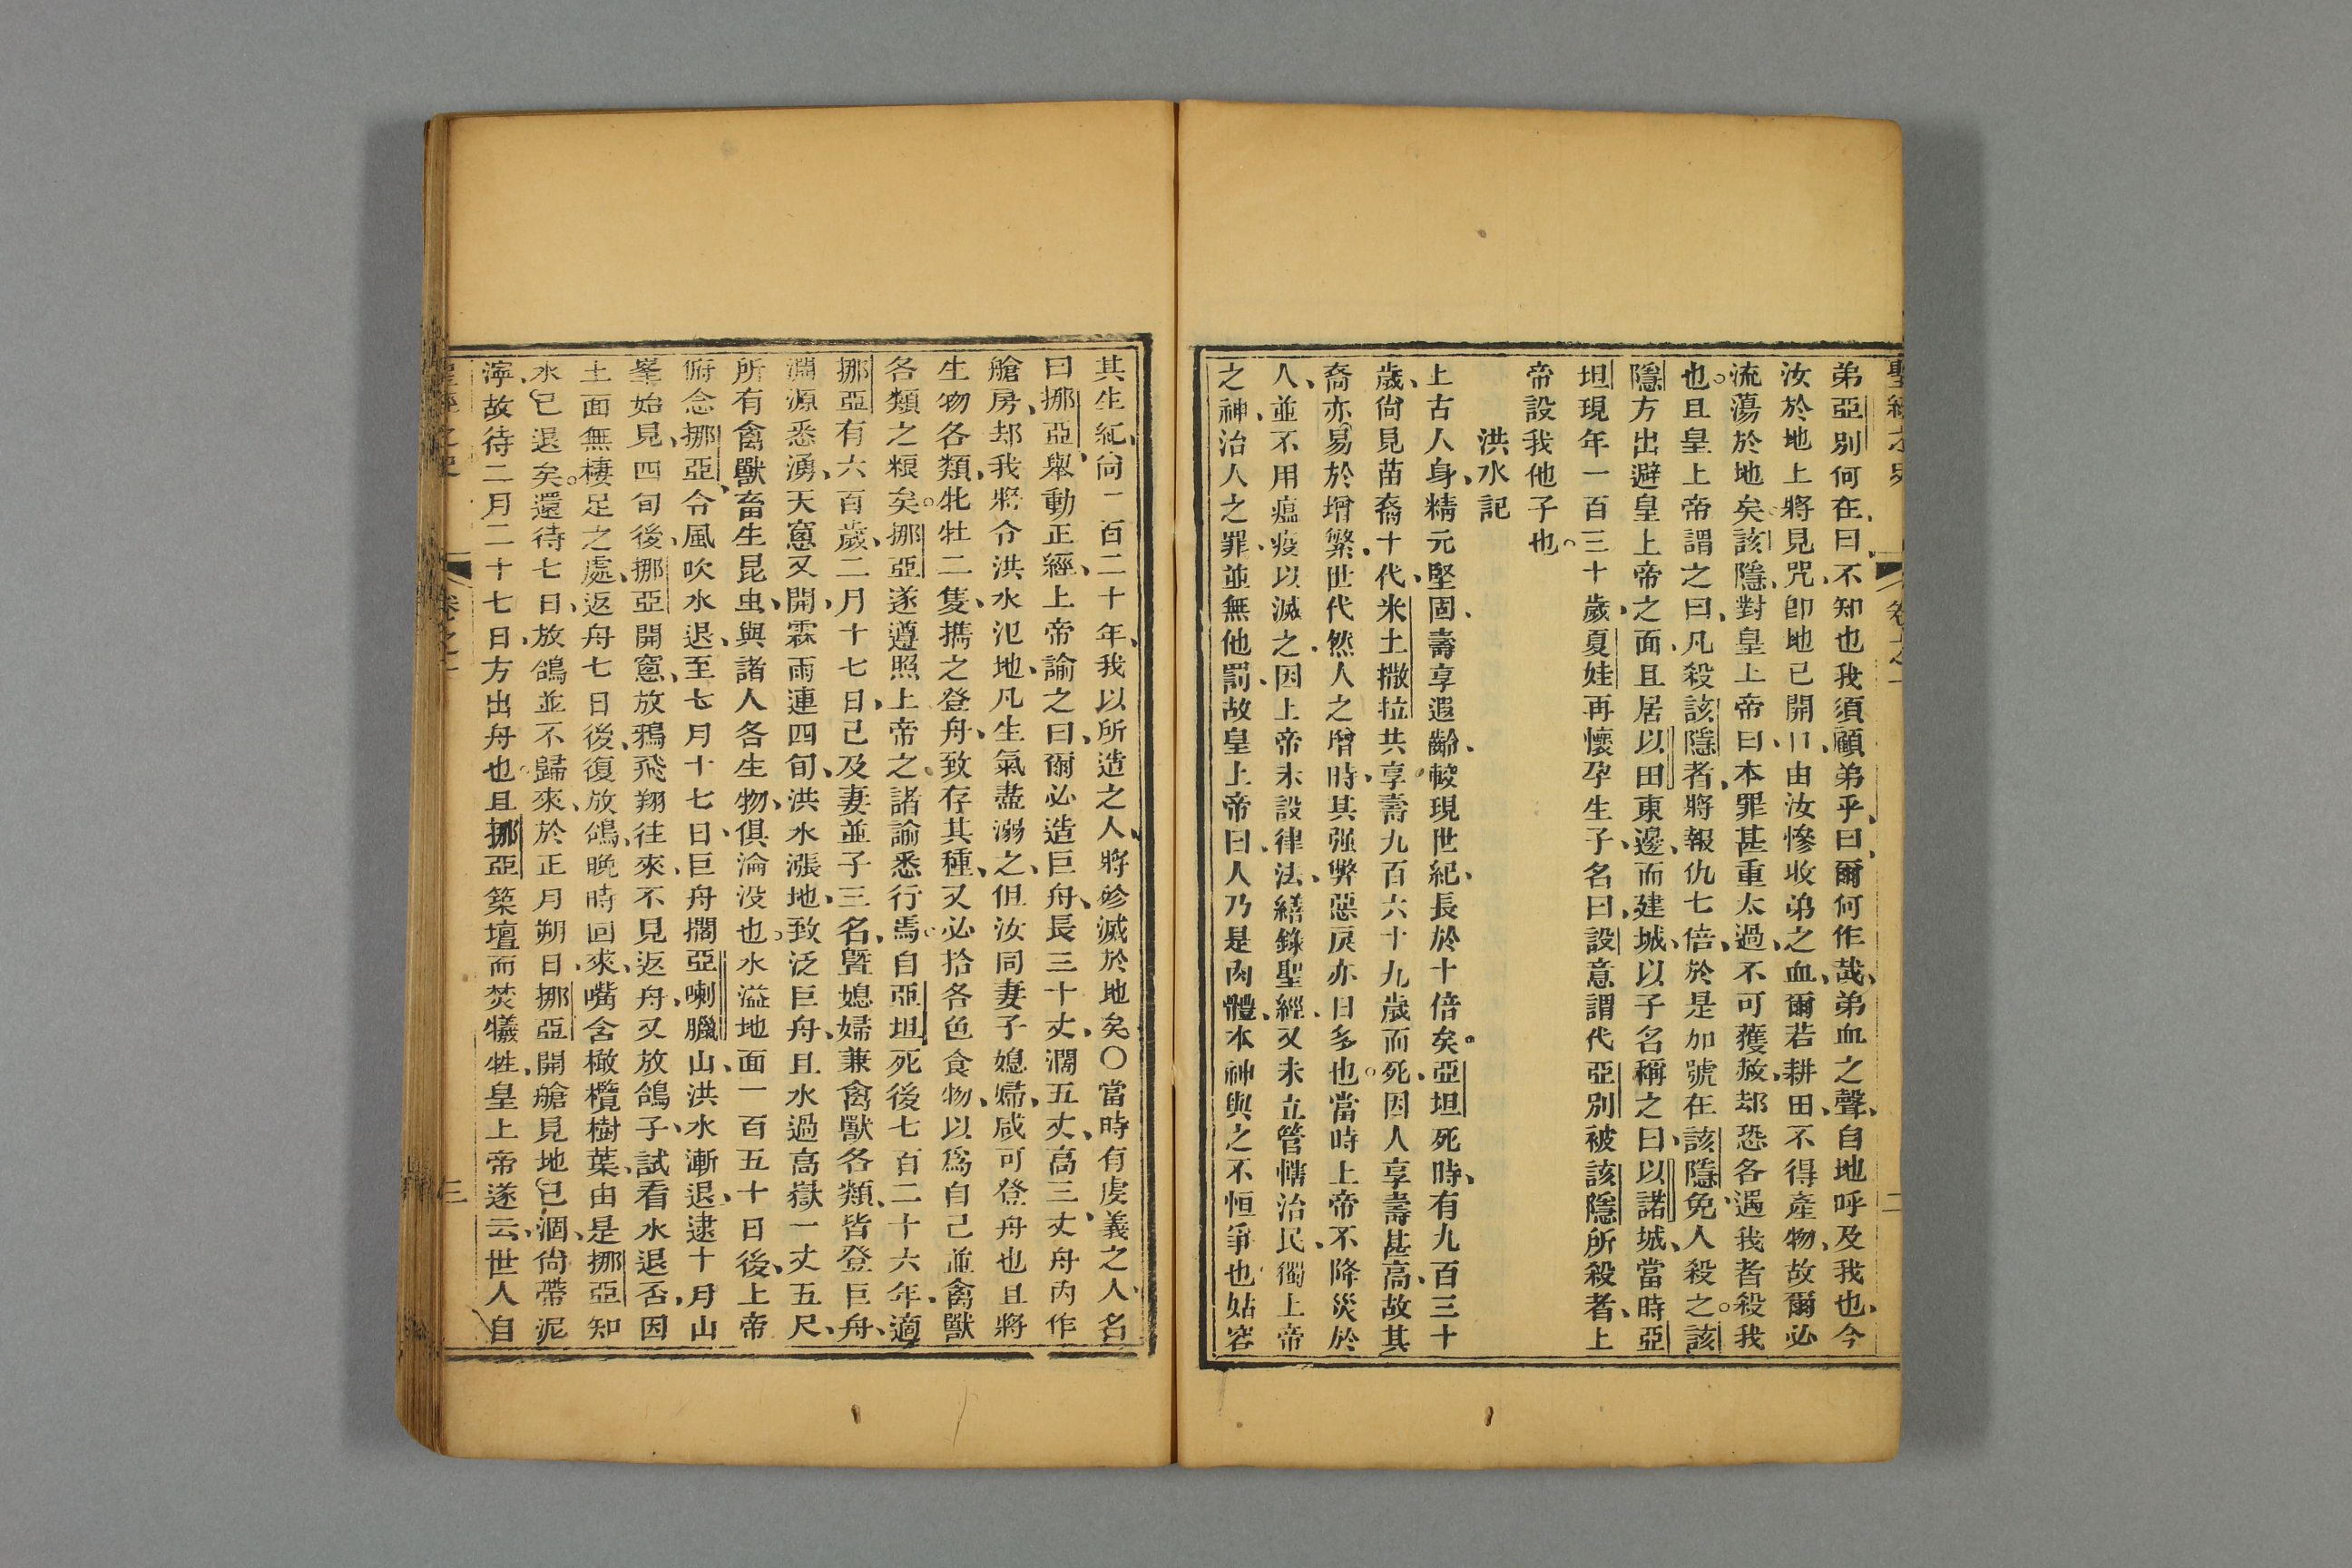 聖經之史 卷之一 二
弟亞別何在、曰、不知也我須顧弟乎、曰、爾何作哉、弟血之聲、自地呼及我也、今
汝於地上將見咒、卽地已開口、由汝慘收弟之血、爾若耕田、不得產物、故爾必
流蕩於地矣。該隱、對皇上帝曰、本罪甚重太過、不可獲赦、却恐各遇我者殺我
也。且皇上帝謂之曰、凡殺該隱者、將報仇七倍、於是加號在該隱、免人殺之。該
隱方出避皇上帝之面、且居以田東邊、而建城、以子名稱之曰、以諾城、當時亞
坦現年一百三十歲、夏娃再懷孕生子、名曰、設意謂代亞別被該隱所殺者、上
帝設我他子也。
洪水記
上古人身、精元堅固、壽享遐齡、較現世紀、長於十倍矣。亞坦死時、有九百三十
歲、尙見苗裔十代、米土撒拉共享壽九百六十九歲而死、因人享壽甚高、故其
裔亦易於增繁、世代然人之增時、其强弊惡戾亦日多也。當時上帝不降災於
人、並不用瘟疫以滅之、因上帝未設律法、繕錄聖經、又未立管轄治民、獨上帝
之神、治人之罪、並無他罰、故皇上帝曰、人乃是肉體、本神與之不恒爭也、姑容
其生紀、尙一百二十年、我以所造之人、將殄滅於地矣、〇當時有虔義之人、名
曰挪亞、舉動正經、上帝諭之曰、爾必造巨舟、長三十丈、濶五丈、高三丈、舟內作
艙房、却我將令洪水氾地、凡生氣盡溺之、但汝同妻子媳婦、咸可登舟也、且將
生物各類、牝牡二隻、攜之登舟、致存其種、又必拾各色食物、以爲自己並禽獸
各類之粮矣。挪亞遂遵照上帝之諸諭悉行焉。自亞坦死後七百二十六年、適
挪亞有六百歲、二月十七日、己及妻並子三名、曁媳婦兼禽獸各類、皆登巨舟、
淵源悉湧、天窻又開、霖雨連四旬、洪水漲地、致泛巨舟、且水過高嶽一丈五尺、
所有禽獸畜生昆虫、與諸人各生物、俱淪没也。水溢地面一百五十日後、上帝
俯念挪亞、令風吹水退、至七月十七日、巨舟擱亞喇臘山、洪水漸退、逮十月山
峯始見、四旬後、挪亞開窻、放鴉飛翔往來、不見返舟、又放鴿子、試看水退否、因
土面無棲足之處、返舟七日後、復放鴿、晚時回來、嘴含橄欖樹葉、由是挪亞知
水已退矣。還待七日、放鴿並不歸來、於正月朔日、挪亞開艙見地已涸、尙帶泥
濘、故待二月二十七日、方出舟也、且挪亞築壇而焚犧牲、皇上帝遂云、世人自
聖經之史 卷之一 三